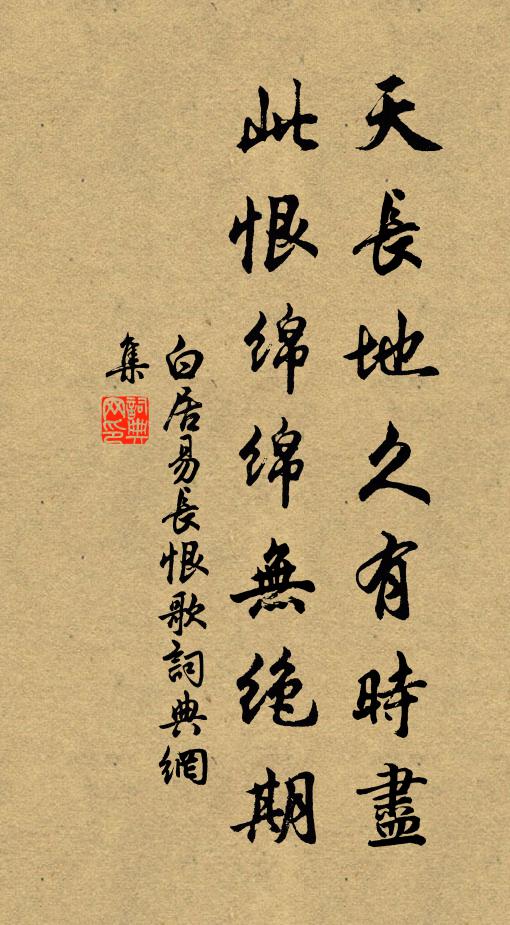 天長地久有時盡
此恨綿綿無絶期
白居易長恨歌詞典網
集
詞典网印